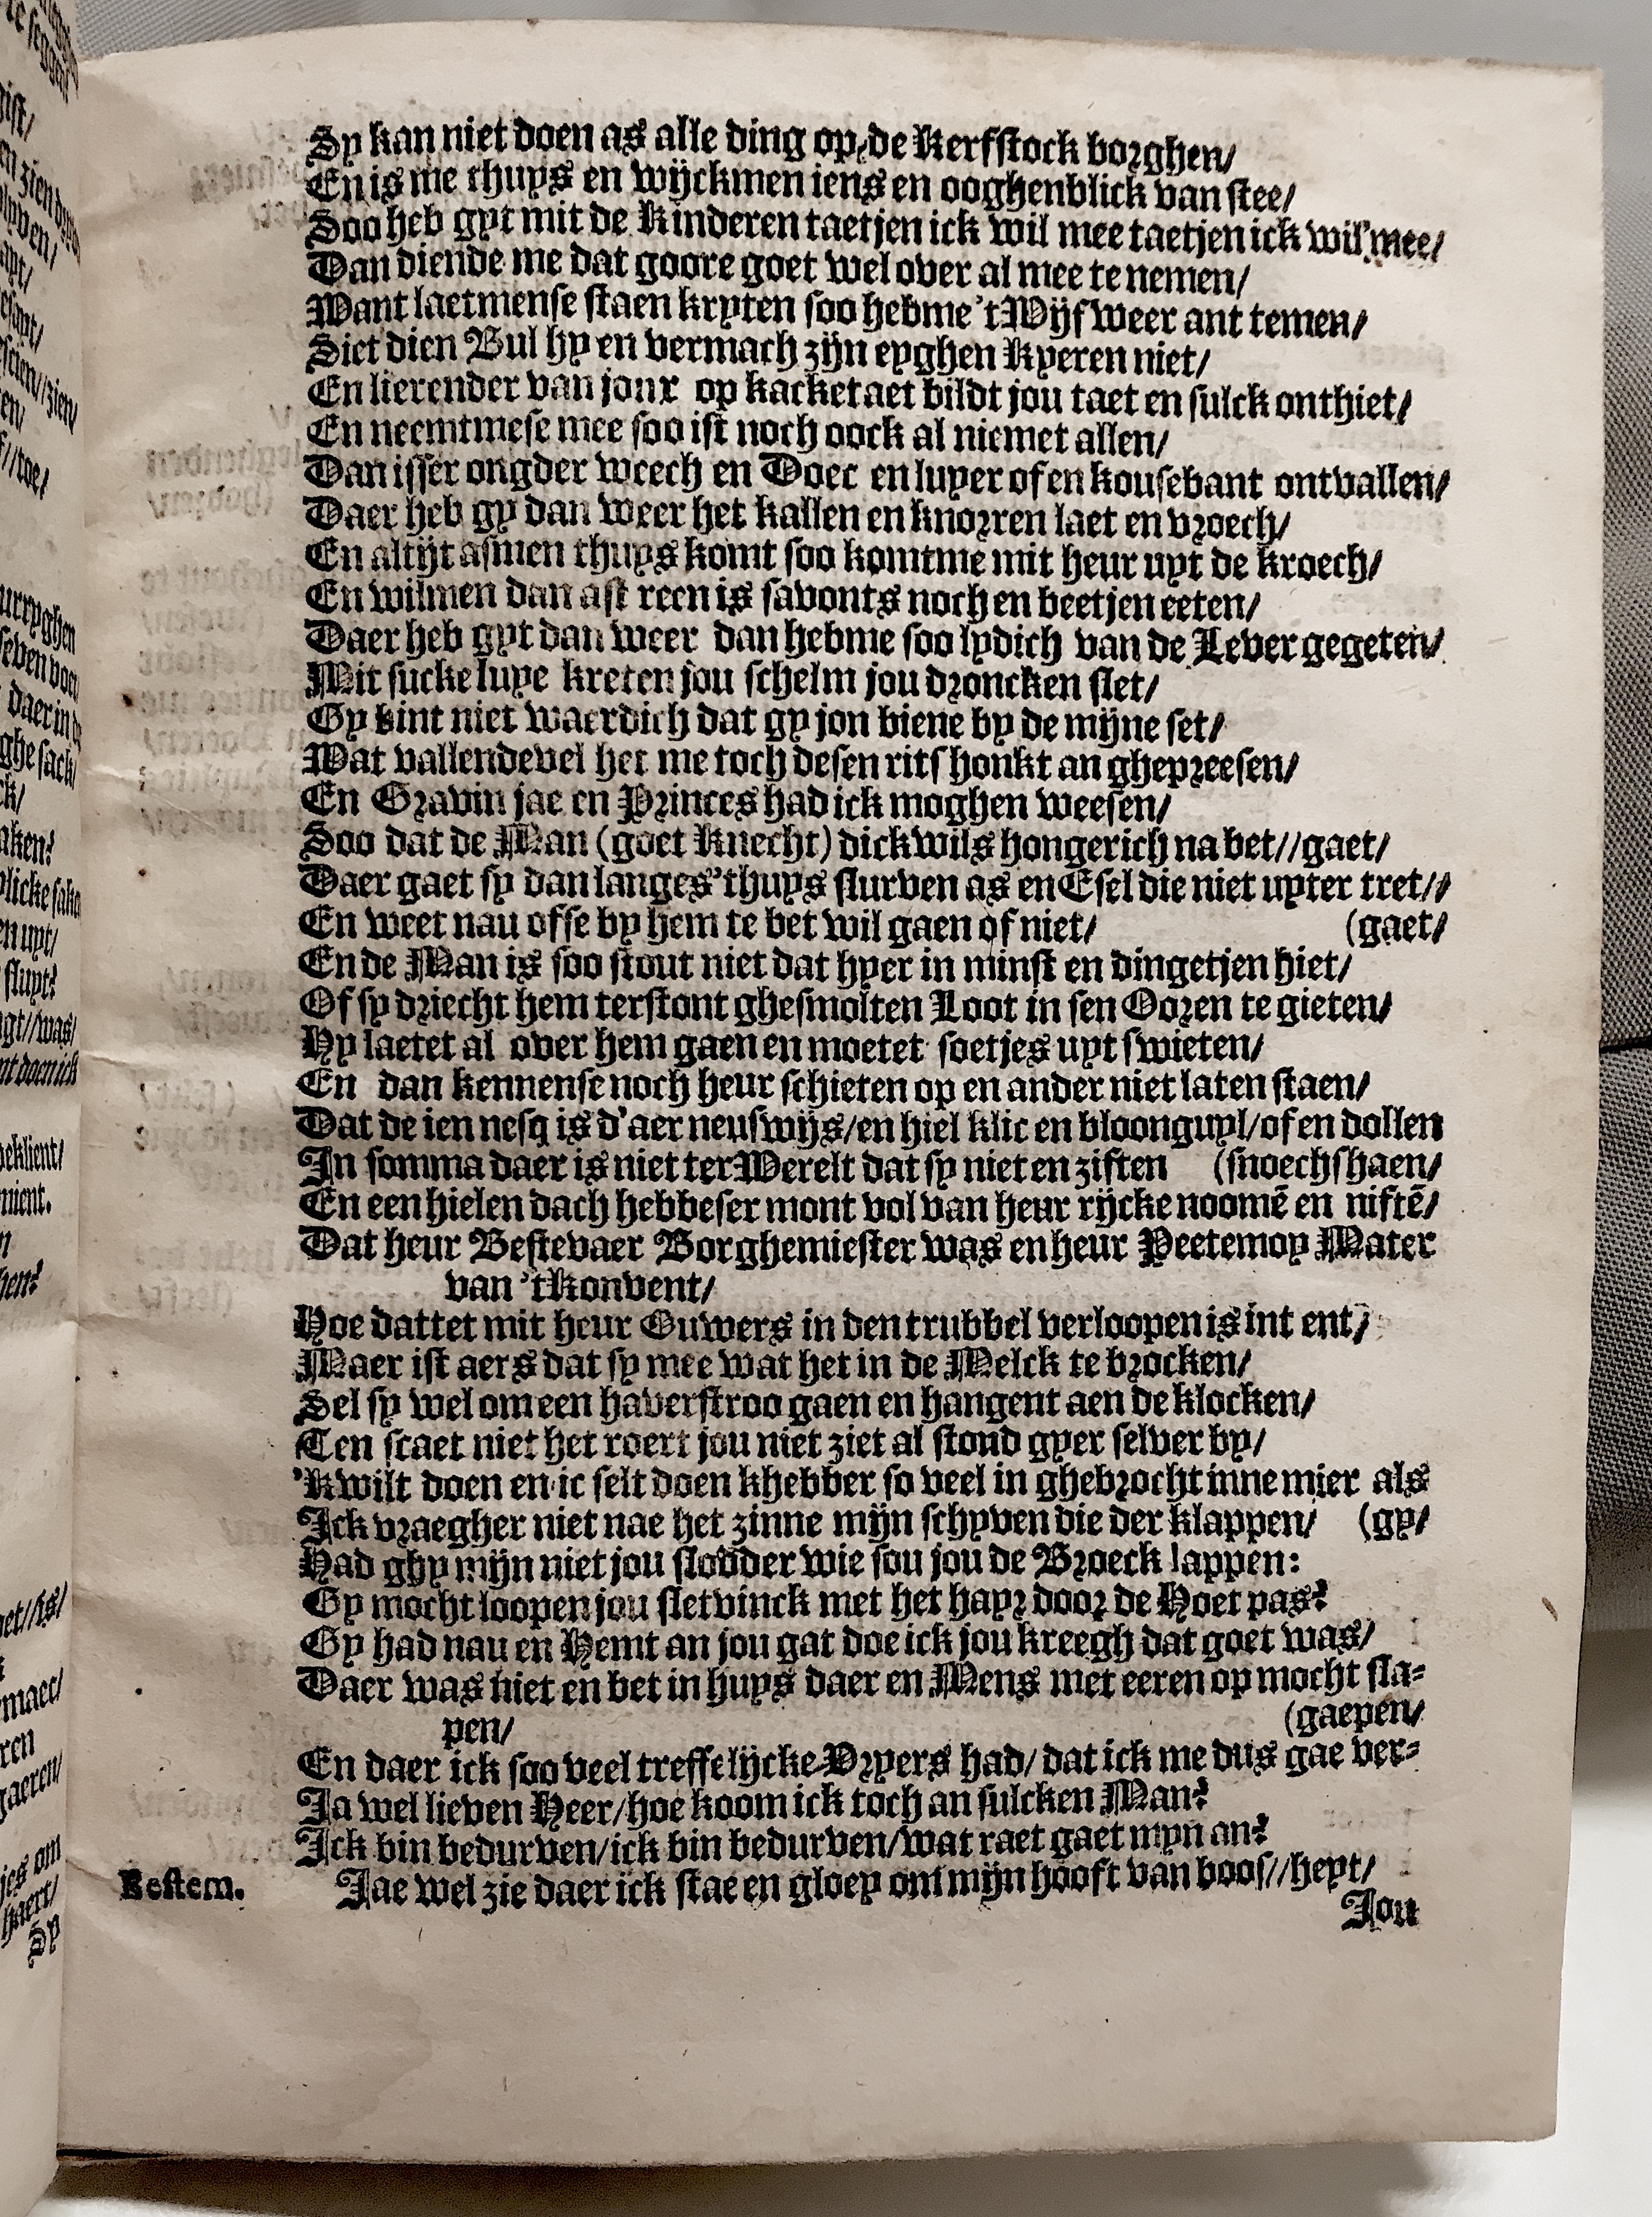 Sy kan niet doen as alle ding op de Kerfstock borghen/
En is me thuys en wijckmen iens en ooghenblick van stee/
Soo heb gyt mit de Kinderen taetjen ick wil mee taetjen ick wil mee/
Dan diende me dat goore goet wel over al mee te nemen/
Want laetmense staen kryten soo hebme 't Wijf weer ant temen/
Siet dien Bul hy en vermach zijn eyghen Kyeren niet/
En lierender van jonx op kacketaet bildt jou taet en sulck onthiet/
En neemtmese mee soo ist noch oock al niemet allen/
Dan isser ongder weech en Doec en luyer of en kousebant ontvallen/
Daer heb gy dan weer het kallen en knorren laet en vroech/
En altijt asmen thuys komt soo komtme mit heur uyt de kroech/
En wilmen dan ast reen is savonts noch en beetjen eeten/
Daer heb gyt dan weer dan hebme soo lydich van de Lever gegeten/
Mit sucke luye kreten jou schelm jou droncken slet/
Gy bint niet waerdich dat gy jon biene by de mijne set/
Wat vallendevel het me toch desen rits honkt an ghepreesen/
En Gravin jae en Princes had ick moghen weesen/
Soo dat de Man (goet Knecht) dickwils hongerich na bet//gaet/
Daer gaet sy dan langes 'thuys slurven as en Esel die niet uyter tret//
En weet nau ofse by hem te bet wil gaen of niet/ (gaet/
En de Man is soo stout niet dat hyer in minst en dingetjen hiet/
Of sy driecht hem terstont ghesmolten Loot in sen Ooren te gieten/
Hy laetet al over hem gaen en moetet soetjes uyt swieten/
En dan kennense noch heur schieten op en ander niet laten staen/
Dat de ien nesq is d'aer neuswijs/en hiel klic en bloonguyl/of en dollen
In somma daer is niet ter Werelt dat sy niet en ziften (snoechshaen/
En een hielen dach hebbeser mont vol van heur rijcke noomē en niftē/
Dat heur Bestevaer Borghemiester was en heur Peetemoy Mater
van 't Konvent/
Hoe dattet mit heur Ouwers in den trubbel verloopen is int ent/
Maer ist aers dat sy mee wat het in de Melck te brocken/
Sel sy wel om een haverstroo gaen en hangent aen de klocken/
Ten staet niet het roert jou niet ziet al stond gyer selver by/
'K wilt doen en ic selt doen khebber so veel in ghebrocht inne mier als
Ick vraegher niet nae het zinne mijn schyven die der klappen/ (gy/
Had ghy mijn niet jou slodder wie sou jou de Broeck lappen:
Gy mocht loopen jou sletvinck met het hayr door de Hoet pas?
Gy had nau en Hemt an jou gat doe ick jou kreegh dat goet was/
Daer was niet en bet in huys daer en Mens met eeren op mocht sla-
pen/ (gaepen/
En daer ick soo veel treffelijcke Vryers had/ dat ick me dus gae ver-
Ja wel lieven Heer/hoe koom ick toch an sulcken Man?
Ick bin bedurven/ick bin bedurven/wat raet gaet myn an?
Bestem. Jae wel zie daer ick stae en gloey om mijn hooft van boos//heyt/
Jou